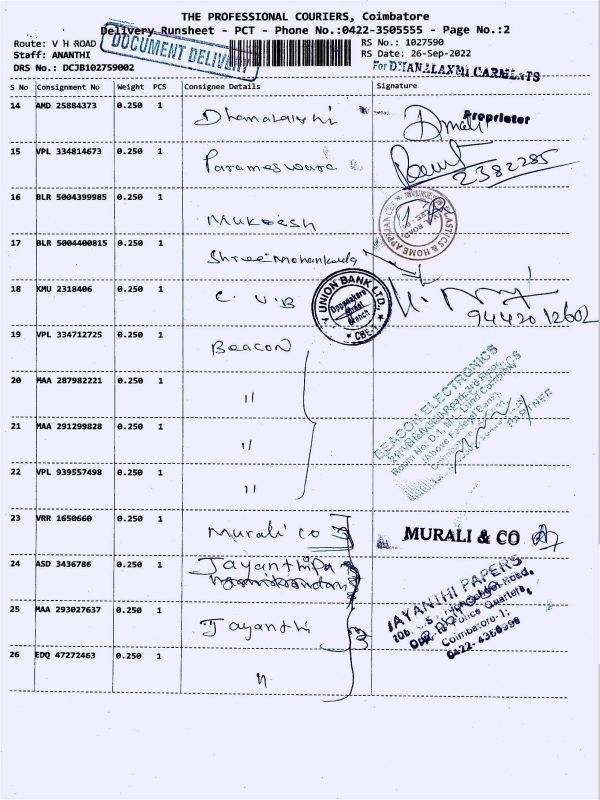 THE PROFESSIONAL COURIERS, Coimbatore
Delivery Runsheet - PCT - Phone No.:0422-3505555 - Page No.:2
Route: V H ROAD
DOCUMENT DELIVERY
RS No.: 1027590
Staff: ANANTHI
RS Date: 26-Sep-2022
DRS No.: DCJB102759002
For DHANALAXMI GARMENTS
S No Consignment No Weight PCS Consignee Details Signature
14 AMD 25884373 0.250 1 Dhanalakshmi
Proprietor
15 VPL 334814673 0.250 1 Parameswara
2382285
16 BLR 5004399985 0.250 1 Mukeesh
PLASTICS & HOME APPLIANCES
17 BLR 5004400815 0.250 1
18 KMU 2318406 0.250 1 C. U. B
UNION BANK LTD.
Oppanakara
Street
Branch
CBE-1
9442012602
19 VPL 334712725 0.250 1 Beacon
BEACON ELECTRONICS
20 MAA 287982221 0.250 1 "
(Above Federal Bank),
PARTNER
21 MAA 291299828 0.250 1 "
22 VPL 939557498 0.250 1 "
23 VRR 1650660 0.250 1 Murali Co
MURALI & CO
24 ASD 3436786 0.250 1
JAYANTHI PAPERS
25 MAA 293027637 0.250 1 Jayanthi
Opp. Police Quarters,
Coimbatore-1.
26 EDQ 47272463 0.250 1 "